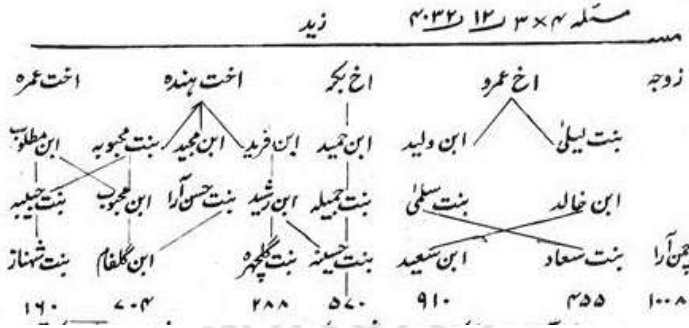 مسئلہ ۴ × ۳ / ۱۲ / ۴۰۳۲ زید
زوجہ اخ عمرو اخ بکر اخت ہندہ اخت عمرہ
بنت لیلیٰ ابن ولید ابن حمید ابن فرید ابن مجید بنت محبوبہ ابن مطلوب
ابن خالد بنت سلمیٰ بنت جمیلہ ابن رشید بنت حسن آرا ابن محبوب بنت حبیبہ
چمن آرا بنت سعاد ابن سعید بنت حسینہ بنت گلچہرہ ابن گلفام بنت شہناز
۱۰۰۸ ۴۵۵ ۹۱۰ ۵۷۰ ۲۸۸ ۷۰۴ ۱۶۰